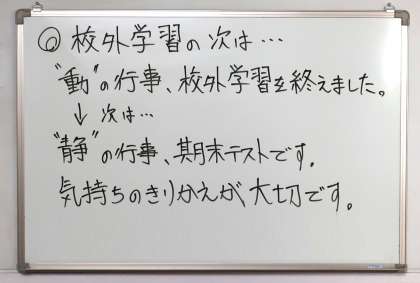 ◎ 校外学習の次は…
"動"の行事、校外学習を終えました。
↓ 次は…
"静"の行事、期末テストです。
気持ちのきりかえが大切です。